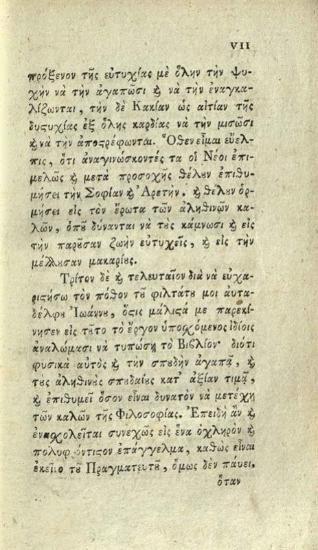 VII
πρόξενον τῆς εὐτυχίας μὲ ὅλην τὴν ψυ-
χήν νὰ τὴν ἀγαπῶσι ϗ νὰ τὴν ἐναγκα-
λίζωνται, τὴν δὲ Κακίαν ὡς αἰτίαν τῆς
δυςυχίας ἐξ ὅλης καρδίας νὰ τὴν μισῶσι
ϗ νὰ τὴν ἀποςρέφωνται. Ὅθεν εἶμαι εὔελ-
πις, ὅτι ἀναγινώσκοντές τα οἱ Νέοι ἐπι-
μελῶς ϗ μετὰ προσοχῆς θέλȣν ἐπιθυ-
μήσει τὴν Σοφίαν ϗ Ἀρετήν. ϗ θέλȣν ὁρ-
μήσει εἰς τὸν ἔρωτα τῶν ἀληθινῶν κα-
λῶν, ὁπȣ̃ δύνανται νὰ τȣς κάμνωσι ϗ εἰς
τὴν παρȣ̃σαν ζωὴν εὐτυχεῖς, ϗ εἰς τὴν
μέλλȣσαν μακαρίȣς.
Τρίτον δὲ ϗ τελευταῖον διὰ νὰ εὐχα-
ριςήσω τὸν πόθον τȣ̃ φιλτάτȣ μοι αὐτα-
δέλφȣ Ἰωάννȣ, ὅςις μάλιςα μὲ παρεκί-
νησεν εἰς τȣ̃το τὸ ἔργον ὑποσχόμενος ἰδίοις
ἀναλώμασι νὰ τυπώσῃ τὸ Βιβλίον· διότι
φυσικὰ αὐτὸς ϗ τὴν σπȣδὴν ἀγαπᾷ, ϗ
τȣς ἀληθινȣς σπȣδαίȣς κατ᾽ ἀξίαν τιμᾷ,
ϗ ἐπιθυμεῖ ὅσον εἶναι δυνατὸν νὰ μετέχῃ
τῶν καλῶν τῆς Φιλοσοφίας. Ἐπειδὴ ἂν ϗ
ἐνασχολεῖται συνεχῶς εἰς ἕνα ὀχληρὸν ϗ
πολυφρόντιςον ἐπάγγελμα, καθὼς εἶναι
ἐκεῖνο τȣ̃ Πραγματευτȣ̃, ὅμως δὲν παύει,
ὅταν